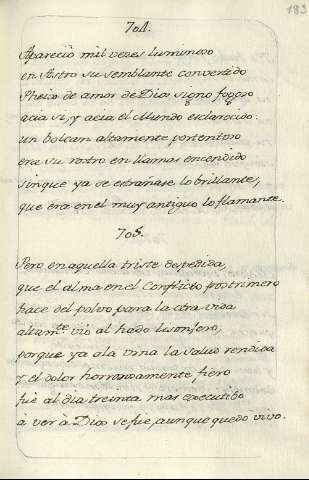 183
704.
Apareciò mil vezes luminoso
en Astro su semblante convertido
de amor de Dios signo fogoso
acia si, y acia el Mundo esclarecido:
un bolcan altamente portentoso
era su rostro en llamas encendido
sinque ya se estrañase lo brillante,
que era en el muy antiguo lo flamante.
705.
Pero en aquella triste despedida,
que el alma en el Conflicto postrimero
hace del polvo para la otra vida
altamte. viò al hado lisonjero,
porque ya a la vina la salud rendida
y el dolor horrorosamente fiero
fuè al dia treinta mas executibo
à ver à Dios se fue, aunque quedò vivo.